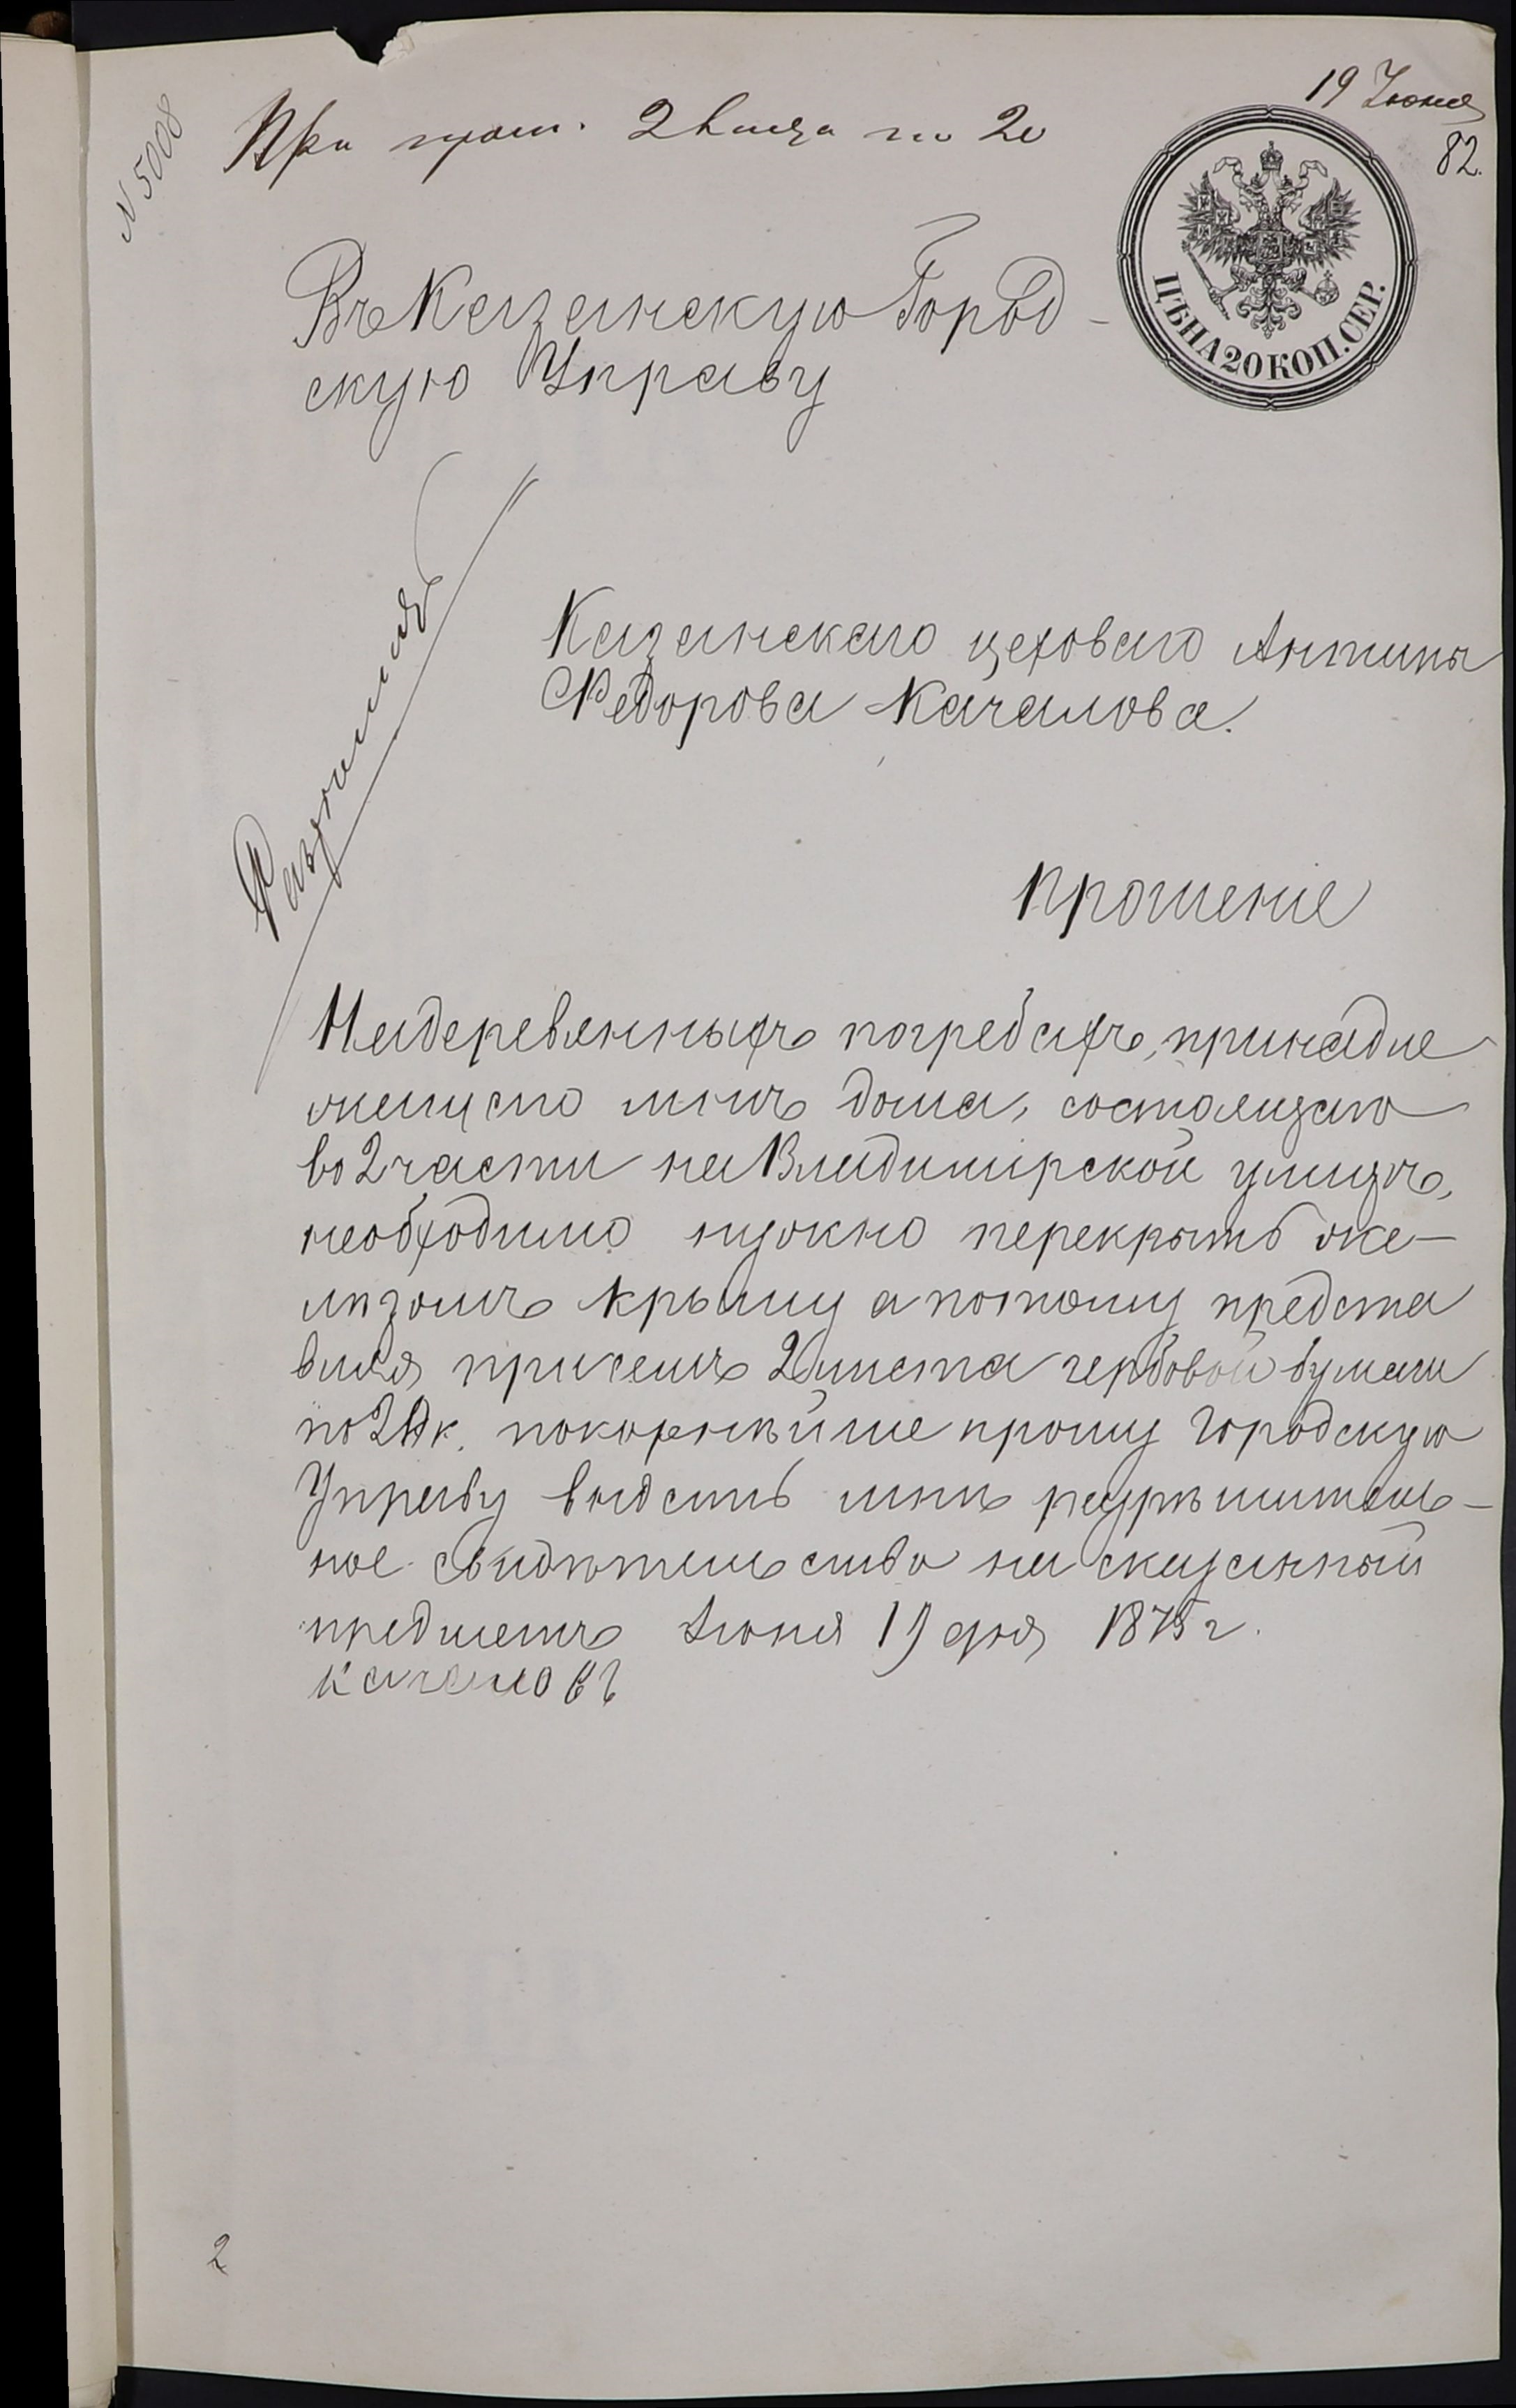 19 Іюня
82.
N 5008
При прош. 2 листа по 20
ЦѢНА 20 КОП. СЕР.
Въ Казанскую Город-
скую Управу
Казанскаго цеховаго Антипы
Федорова Качалова.
Прошеніе
На деревянныхъ погребахъ, принадле
жащаго мнѣ дома, состоящаго
во 2 части на Владимірской улицѣ,
необходимо нужно перекрыть же-
лѣзомъ крышу а потому предста
вляя при семъ 2 листа гербовой бумаги
по 20 к. покорнѣйше прошу Городскую
Управу выдать мнѣ разрѣшитель-
ное свидѣтельство на сказанный
предметъ Іюня 19 дня 1875 г.
Качаловъ
2